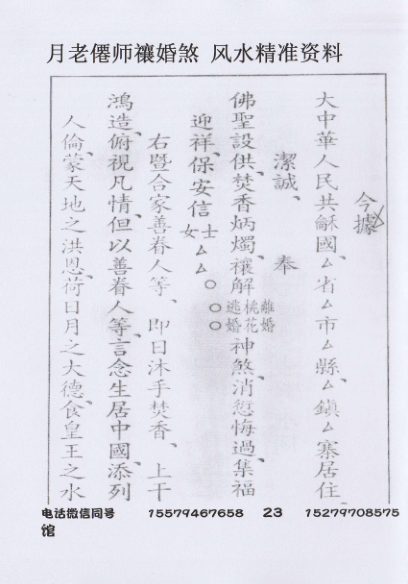 月老僊师禳婚煞 风水精准资料
今據
大中華人民共龢國、厶省厶市厶縣、厶鎮厶寨居住
潔誠、奉
佛聖設供、焚香炳燭、禳解離婚桃花逃婚神煞、消愆悔過集福
迎祥、保安信士女厶厶
右暨合家善眷人等、即日沐手焚香、上干
鴻造、俯視凡情、但以善眷人等、言念生居中國、添列
人倫、蒙天地之洪恩、荷日月之大德、食皇王之水
电话微信同号 15579467658 23 15279708575
馆